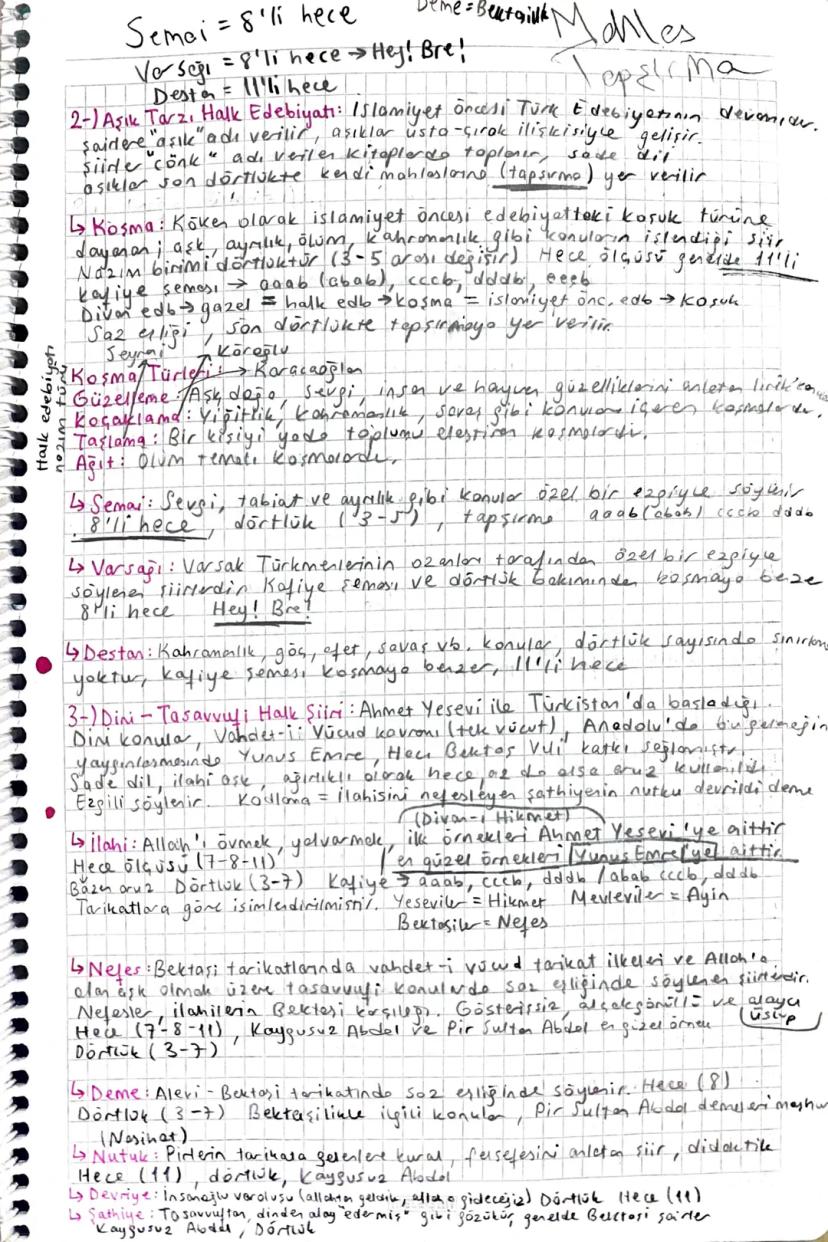 Semai = 8'li hece
Deme = Bektaşilik
Mahles
Tapşırma
Varsağı = 8'li hece → Hey! Bre!
Destan = 11'li hece
2-) Aşık Tarzı Halk Edebiyatı: İslamiyet öncesi Türk Edebiyatının devamıdır.
şairlere "aşık" adı verilir, aşıklar usta-çırak ilişkisiyle gelişir.
şiirler "cönk" adı verilen kitaplarda toplanır, sade dil
aşıklar son dörtlükte kendi mahlaslarına (tapşırma) yer verilir
↳ Koşma: Köken olarak islamiyet öncesi edebiyattaki koşuk türüne
dayanan; aşk, ayrılık, ölüm, kahramanlık gibi konuların işlendiği şiir
Nazım birimi dörtlüktür (3-5 arası değişir) Hece ölçüsü genelde 11'li
kafiye şeması → aaab (abab), cccb, dddb, eeeb
Divan edb → gazel = halk edb → koşma = islamiyet önc. edb → Koşuk
Saz eşliği, son dörtlükte tapşırmaya yer verilir.
Seyrani Köroğlu
Koşma Türleri: → Karacaoğlan
Güzelleme: Aşk, doğa, sevgi, insan ve hayvan güzelliklerini anlatan lirik
Koçaklama: Yiğitlik, kahramanlık, savaş gibi konuları içeren koşmalardır.
Taşlama: Bir kişiyi yada toplumu eleştiren koşmalardır.
Ağıt: Ölüm temalı koşmalardır.
Halk edebiyatı
nazım türü
↳ Semai: Sevgi, tabiat ve ayrılık gibi konular özel bir ezgiyle söylenir
8'li hece, dörtlük (3-5), tapşırma aaab (abab) cccb dddb
↳ Varsağı: Varsak Türkmenlerinin ozanları tarafından özel bir ezgiyle
söylenen şiirlerdir Kafiye şeması ve dörtlük bakımından koşmaya benze
8'li hece Hey! Bre!
↳ Destan: Kahramanlık, göç, afet, savaş vb. konular, dörtlük sayısında sınırlama
yoktur, kafiye şeması koşmaya benzer, 11'li hece
3-) Dini - Tasavvufi Halk Şiiri: Ahmet Yesevi ile Türkistan'da başladığı.
Dini konular, Vahdet-i Vücud kavramı (tek vücut), Anadolu'da bu geleneğin
yaygınlaşmasında Yunus Emre, Hacı Bektaş Veli katkı sağlamıştır.
Sade dil, ilahi aşk, ağırlıklı olarak hece, az da olsa aruz kullanıldı.
Ezgili söylenir. Kodlama = ilahisini nefesleyen şathiyenin nutku devrildi deme
(Divan-ı Hikmet)
↳ İlahi: Allah'ı övmek, yalvarmak, ilk örnekleri Ahmet Yesevi'ye aittir
Hece ölçüsü (7-8-11) en güzel örnekleri Yunus Emre'ye aittir.
Bazen aruz Dörtlük (3-7) Kafiye → aaab, cccb, dddb / abab cccb, dddb
Tarikatlara göre isimlendirilmiştir. Yeseviler = Hikmet Mevleviler = Ayin
Bektaşiler = Nefes
↳ Nefes: Bektaşi tarikatlarında vahdet-i vücud tarikat ilkeleri ve Allah'a
olan aşk olmak üzere tasavvufi konularda saz eşliğinde söylenen şiirlerdir.
Nefesler, ilahilerin Bektaşi karşılığı. Gösterişsiz, alçakgönüllü ve alaycı
üslup
Hece (7-8-11), Kaygusuz Abdal ve Pir Sultan Abdal en güzel örnek
Dörtlük (3-7)
↳ Deme: Alevi - Bektaşi tarikatında saz eşliğinde söylenir. Hece (8)
Dörtlük (3-7) Bektaşilikle ilgili konular, Pir Sultan Abdal demeleri meşhur
(Nasihat)
↳ Nutuk: Pirlerin tarikata gelenlere kural, felsefesini anlatan şiir, didaktik
Hece (11), dörtlük, Kaygusuz Abdal
↳ Devriye: İnsanoğlu varoluşu (allahtan geldik, allaha gideceğiz) Dörtlük Hece (11)
↳ Şathiye: Tasavvuftan, dinden alay "edermiş" gibi gözükür, genelde Bektaşi şairler
Kaygusuz Abdal, Dörtlük